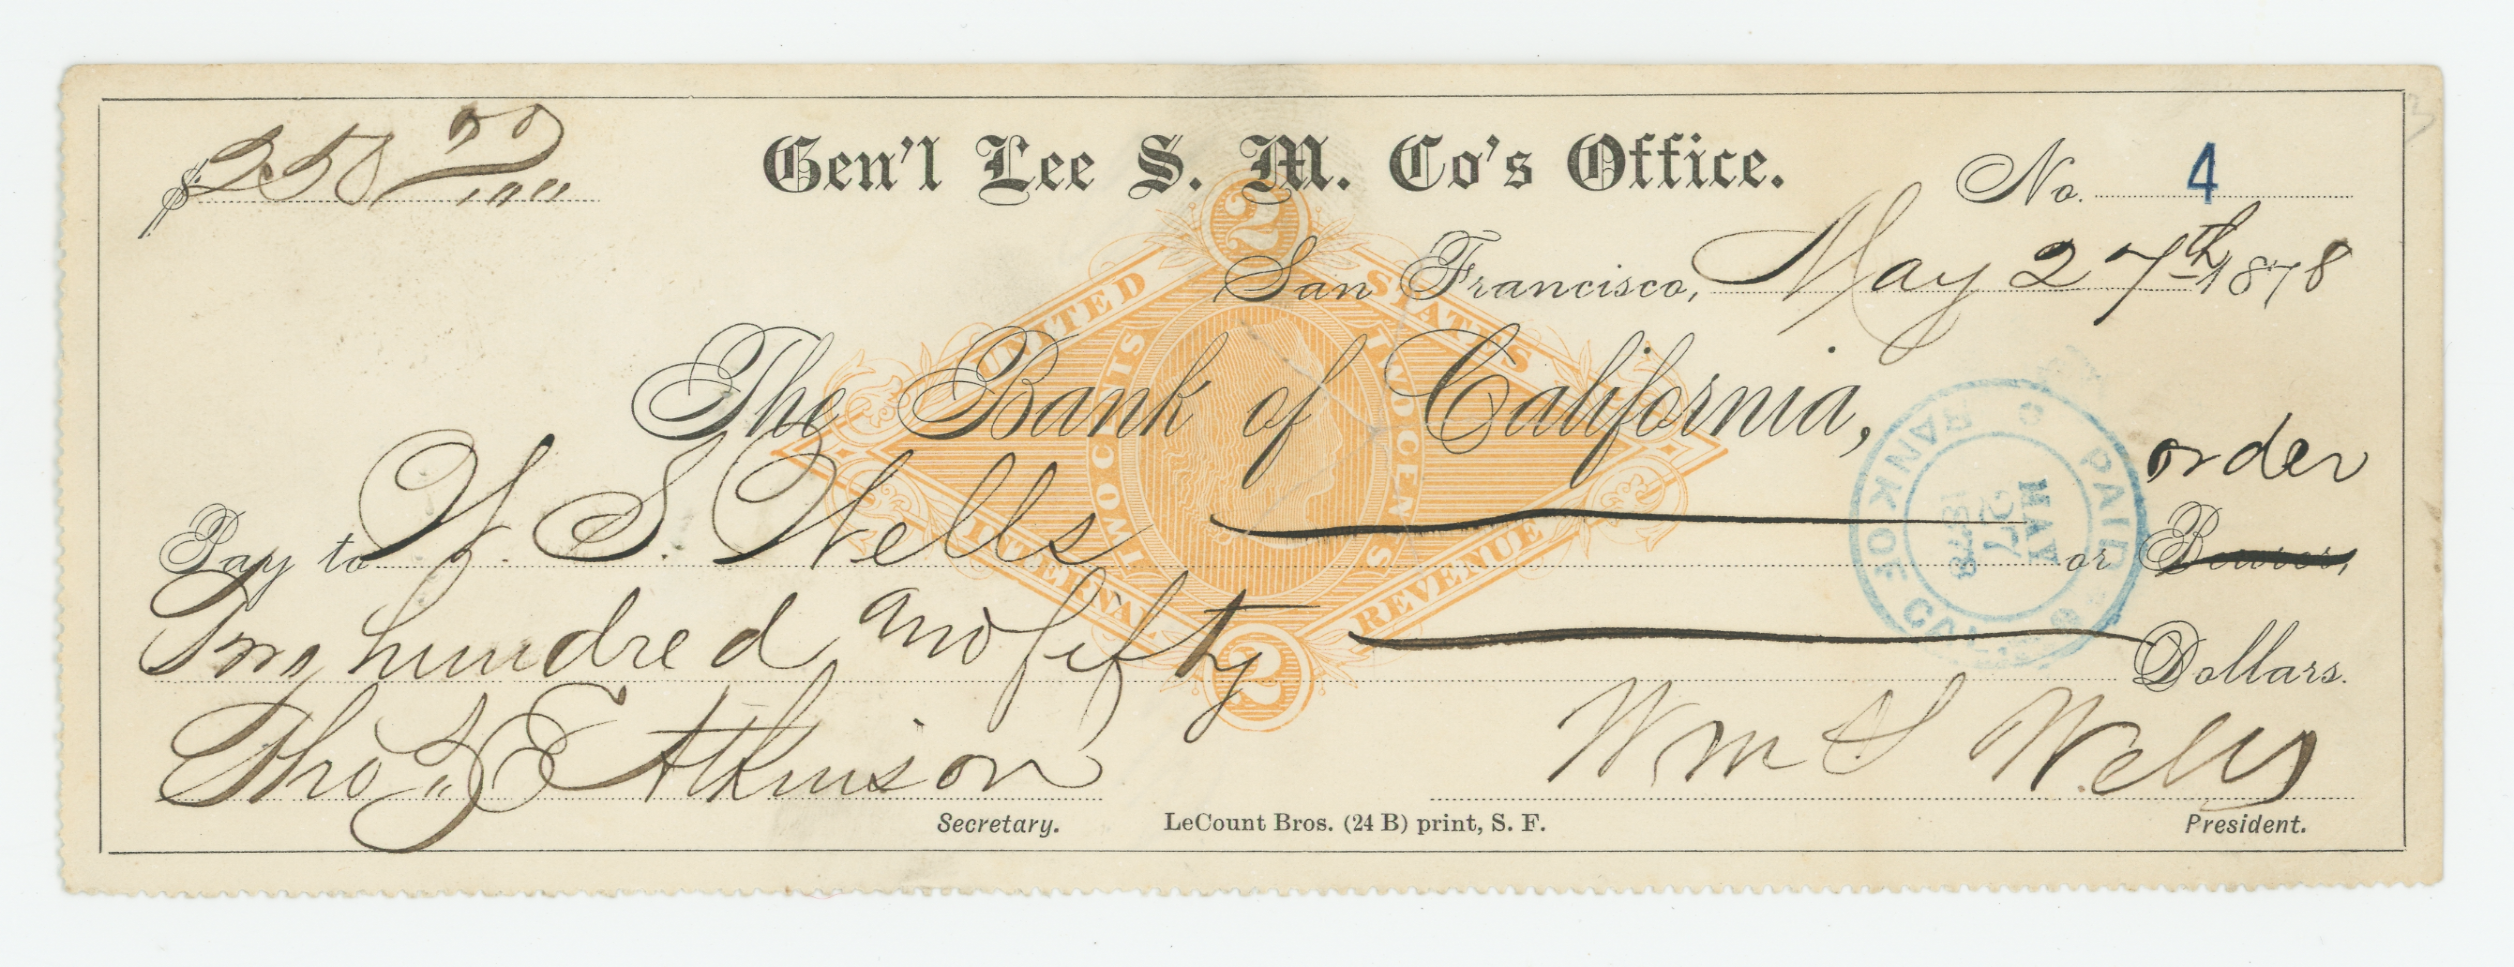 $250 00
Gen'l Lee S. M. Co's Office.
No. 4
San Francisco, May 27th 1878
The Bank of California,
order
Pay to W. S. Wells or Bearer,
Two hundred and fifty Dollars.
Thos E Atkinson
Wm S Wells
Secretary.
LeCount Bros. (24 B) print, S. F.
President.
2
UNITED STATES
TWO CENTS
TWO CENTS
INTERNAL REVENUE
2
BANK OF
PAID
MAY
27
1878
3